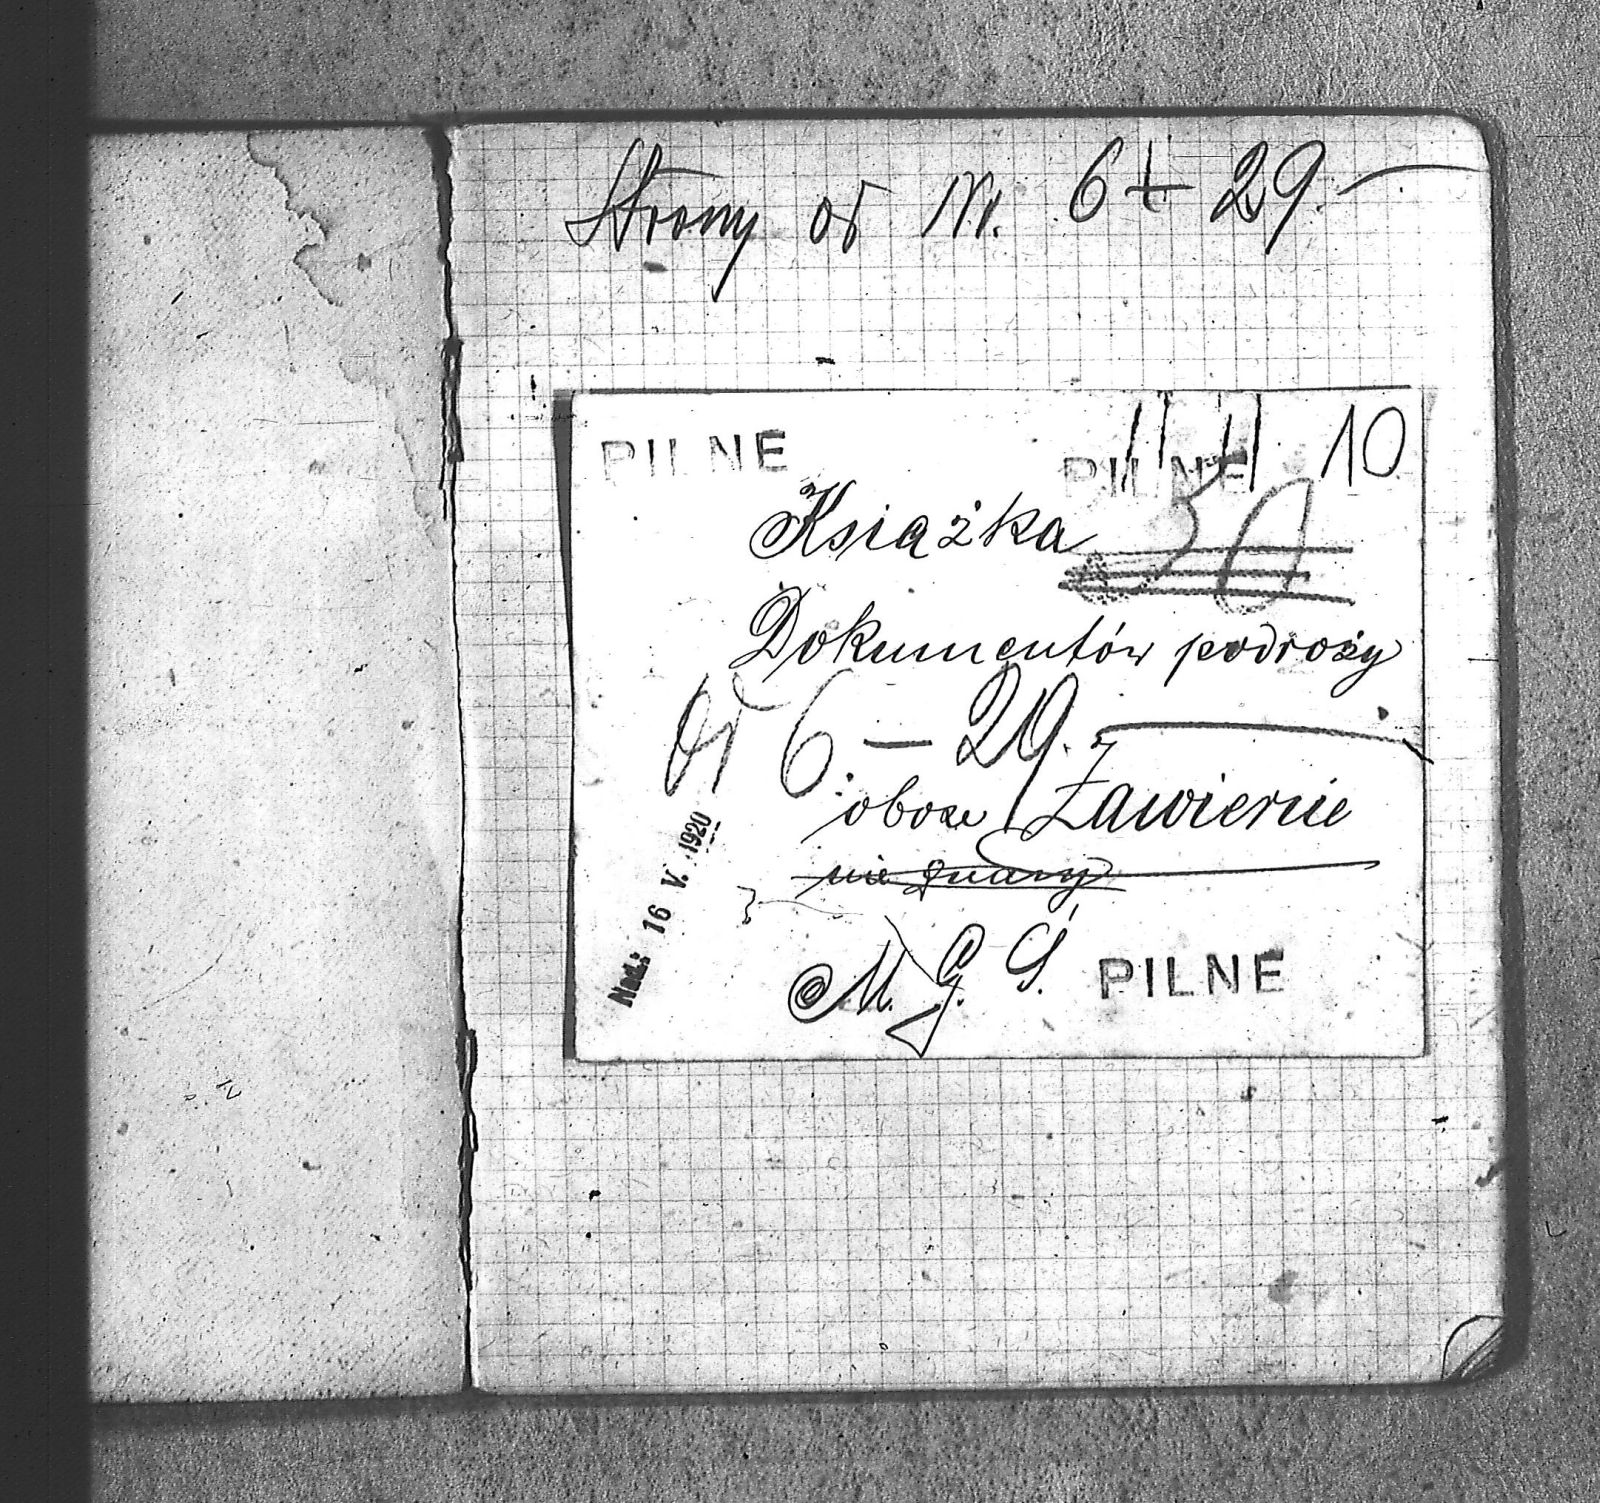 Strony od Nr. 6 + 29.—
PILNE PILNE 10
Książka 30
Dokumentów podroży
Od 6 — 29.
oboze Zawiercie
nie znany
Nad.: 16 V. 1920
M. G. S. PILNE